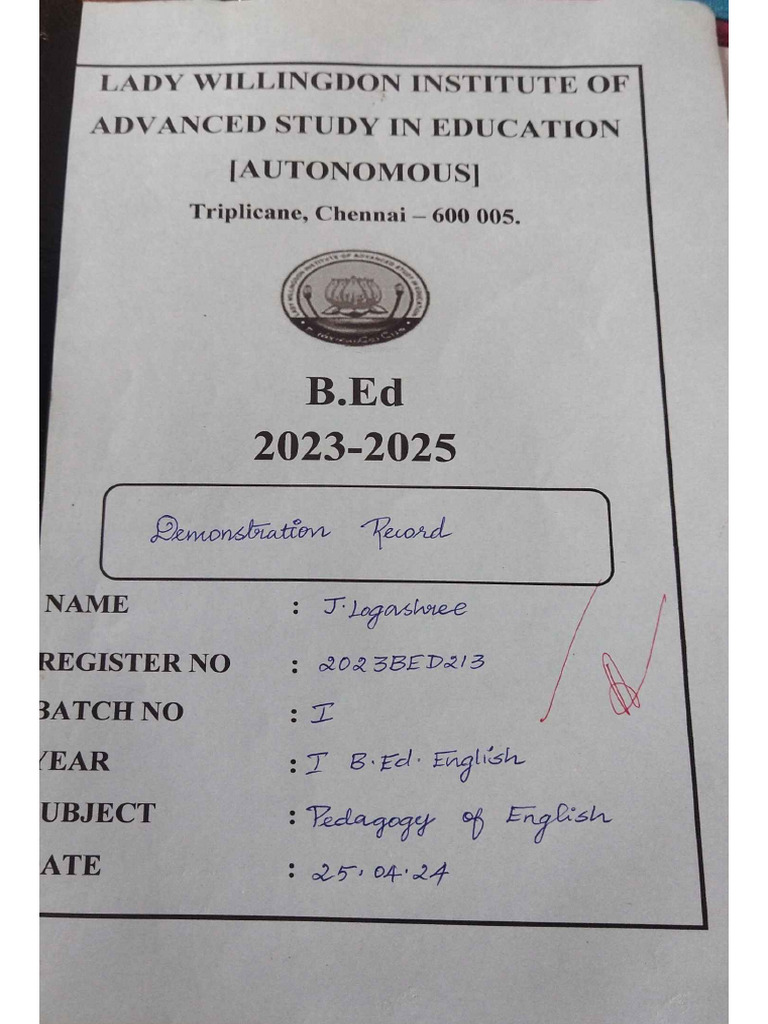 LADY WILLINGDON INSTITUTE OF
ADVANCED STUDY IN EDUCATION
[AUTONOMOUS]
Triplicane, Chennai – 600 005.
LADY WILLINGDON INSTITUTE OF ADVANCED STUDY IN EDUCATION
B.Ed
2023-2025
Demonstration Record
NAME : J. Logashree
REGISTER NO : 2023BED213
BATCH NO : I
YEAR : I B.Ed. English
UBJECT : Pedagogy of English
ATE : 25.04.24